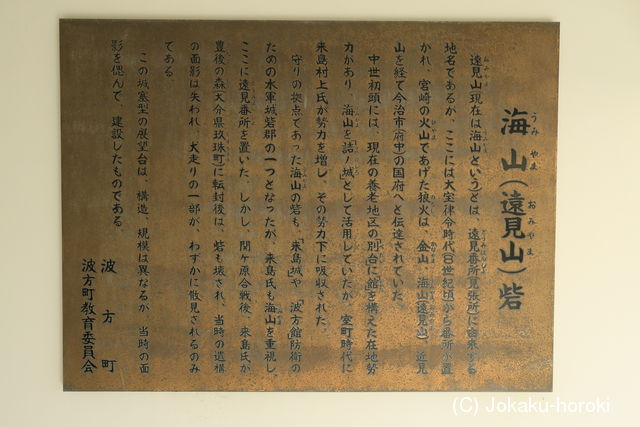 海山(遠見山)砦
うみやま(おみやま)
遠見山(現在は海山という)とは、遠見番所見張所に由来する
地名であるが、ここには大宝律令時代(8世紀頃)から番所が置
かれ、宮崎の火山であげた狼火は、金山、海山(遠見山)、近見
山を経て今治市府中の国府へと伝達されていた。
中世初頭には、現在の養老地区の別台に館を構えた在地勢
力があり、海山を詰ノ城として活用していたが、室町時代に
来島村上氏が勢力を増し、その勢力下に吸収された。
守りの拠点であった海山の砦も、「来島城」や「波方館」防衛の
ための水軍城砦郡の一つとなったが、来島氏も海山を重視し、
ここに遠見番所を置いた。しかし、関ヶ原合戦後、来島氏が
豊後の森(大分県玖珠町)に転封後は、砦も壊され、当時の遺構
の面影は失われ、犬走りの一部が、わずかに散見されるのみ
である
この城塞型の展望台は、構造、規模は異なるが、当時の面
影を偲んで、建設したものである。
波方町
波方町教育委員会
(C) Jokaku-horoki